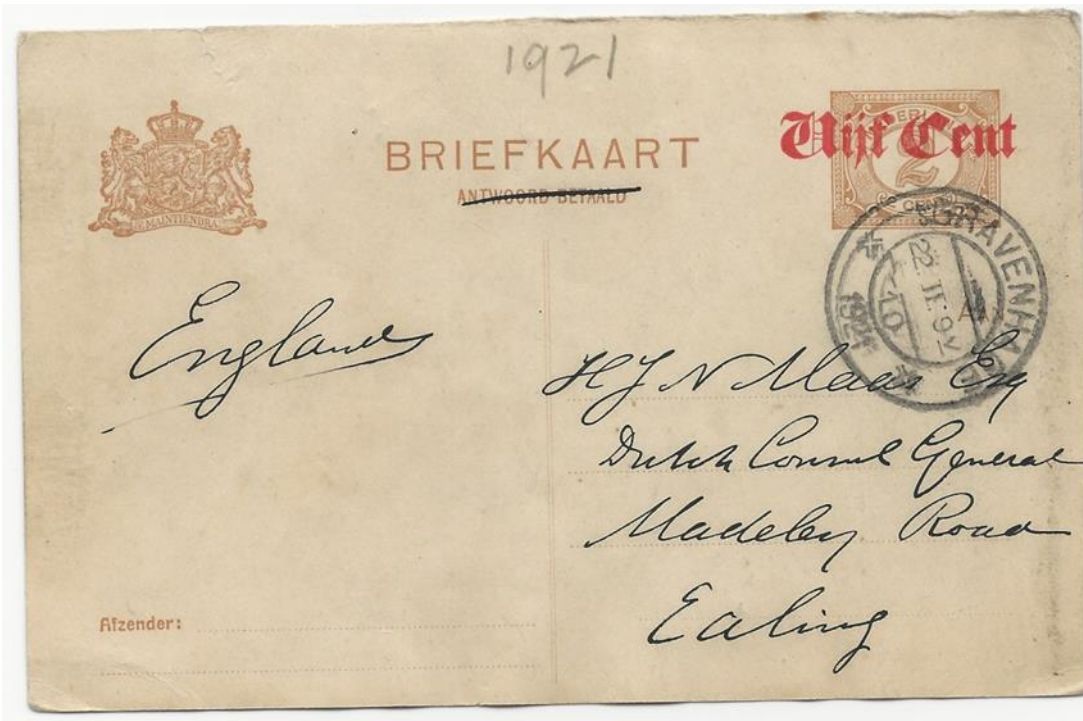 1921
JE MAINTIENDRAI
BRIEFKAART
ANTWOORD BETAALD
Vijf Cent
2
CENT
'S-GRAVENHAGE
22 II 9V
1921
England
Aan
H J N Maas Esq
Dutch Consul General
Madeley Road
Ealing
Afzender: